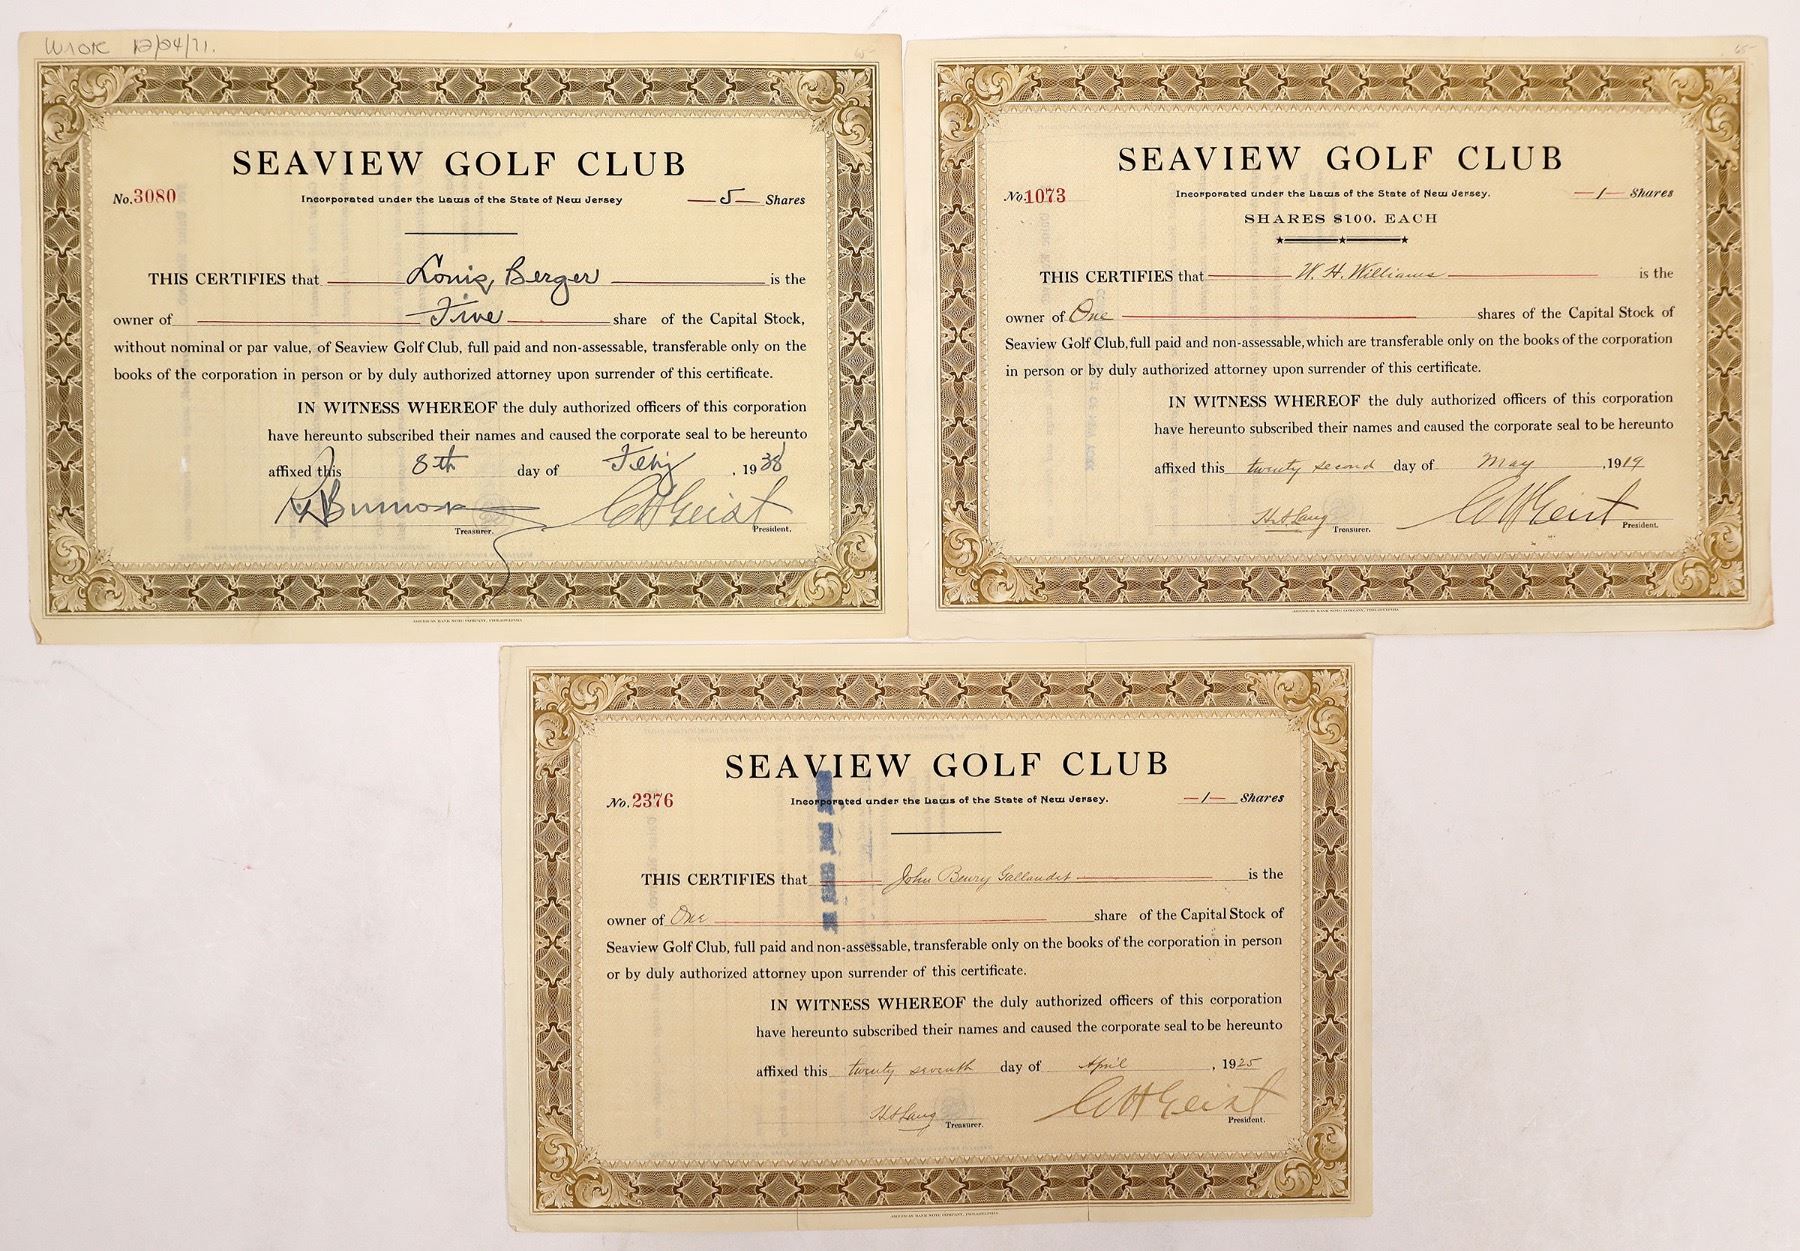 12/04/71.
SEAVIEW GOLF CLUB
No. 3080 Incorporated under the Laws of the State of New Jersey 5 Shares
THIS CERTIFIES that Louis Berger is the
owner of Five share of the Capital Stock,
without nominal or par value, of Seaview Golf Club, full paid and non-assessable, transferable only on the
books of the corporation in person or by duly authorized attorney upon surrender of this certificate.
IN WITNESS WHEREOF the duly authorized officers of this corporation
have hereunto subscribed their names and caused the corporate seal to be hereunto
affixed this 8th day of Feby, 1938
CH Geist
Treasurer. President.
AMERICAN BANK NOTE COMPANY, PHILADELPHIA
65-
SEAVIEW GOLF CLUB
No. 1073 Incorporated under the Laws of the State of New Jersey. 1 Shares
SHARES $100. EACH
THIS CERTIFIES that W. H. Williams is the
owner of One shares of the Capital Stock of
Seaview Golf Club, full paid and non-assessable, which are transferable only on the books of the corporation
in person or by duly authorized attorney upon surrender of this certificate.
IN WITNESS WHEREOF the duly authorized officers of this corporation
have hereunto subscribed their names and caused the corporate seal to be hereunto
affixed this twenty second day of May, 1919
CH Geist
Treasurer. President.
AMERICAN BANK NOTE COMPANY, PHILADELPHIA
SEAVIEW GOLF CLUB
No. 2376 Incorporated under the Laws of the State of New Jersey. 1 Shares
THIS CERTIFIES that John Beury Gallaudet is the
owner of One share of the Capital Stock of
Seaview Golf Club, full paid and non-assessable, transferable only on the books of the corporation in person
or by duly authorized attorney upon surrender of this certificate.
IN WITNESS WHEREOF the duly authorized officers of this corporation
have hereunto subscribed their names and caused the corporate seal to be hereunto
affixed this twenty seventh day of April, 1925
CH Geist
Treasurer. President.
AMERICAN BANK NOTE COMPANY, PHILADELPHIA